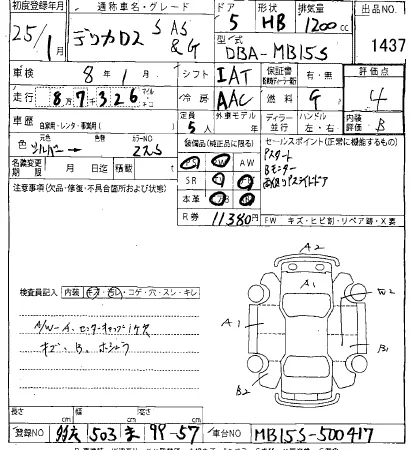 初度登録年月 通称車名・グレード ドア 形状 排気量 出品NO
25/1月 デリカD2 S AS & G 5 HB 1200cc 1437
型式 DBA-MB15S
車検 8年1月 シフト IAT 保証書 有・無 評価点
走行 8万7千326 冷房 AAC 燃料 G 4
車歴 自家用・レンタ・事業用( ) 定員 5人 外車モデル ディーラー 並行 ハンドル 左・右 内装評価 B
色 元色 シルバー → カラーNO Z2S 装備品(純正品に限る) セールスポイント(正常に機能するもの)
名義変更期限 月 日迄 積載 AW Pスタート
注意事項(欠品・修復・不具合箇所および状態) SR Bモニター
本革
R券 11380円 FW キズ・ヒビ割・リペア跡・X要
A2
A1
検査員記入 内装 キズ・汚レ・コゲ・穴・スレ・キレ W2
A1
A/W-イ、センターキャップ1ケ欠
B1
キズ、B、ホシュウ
B2
長さ cm 幅 cm 高さ cm
登録NO 503 ま 99-57 車台NO MB15S-500417